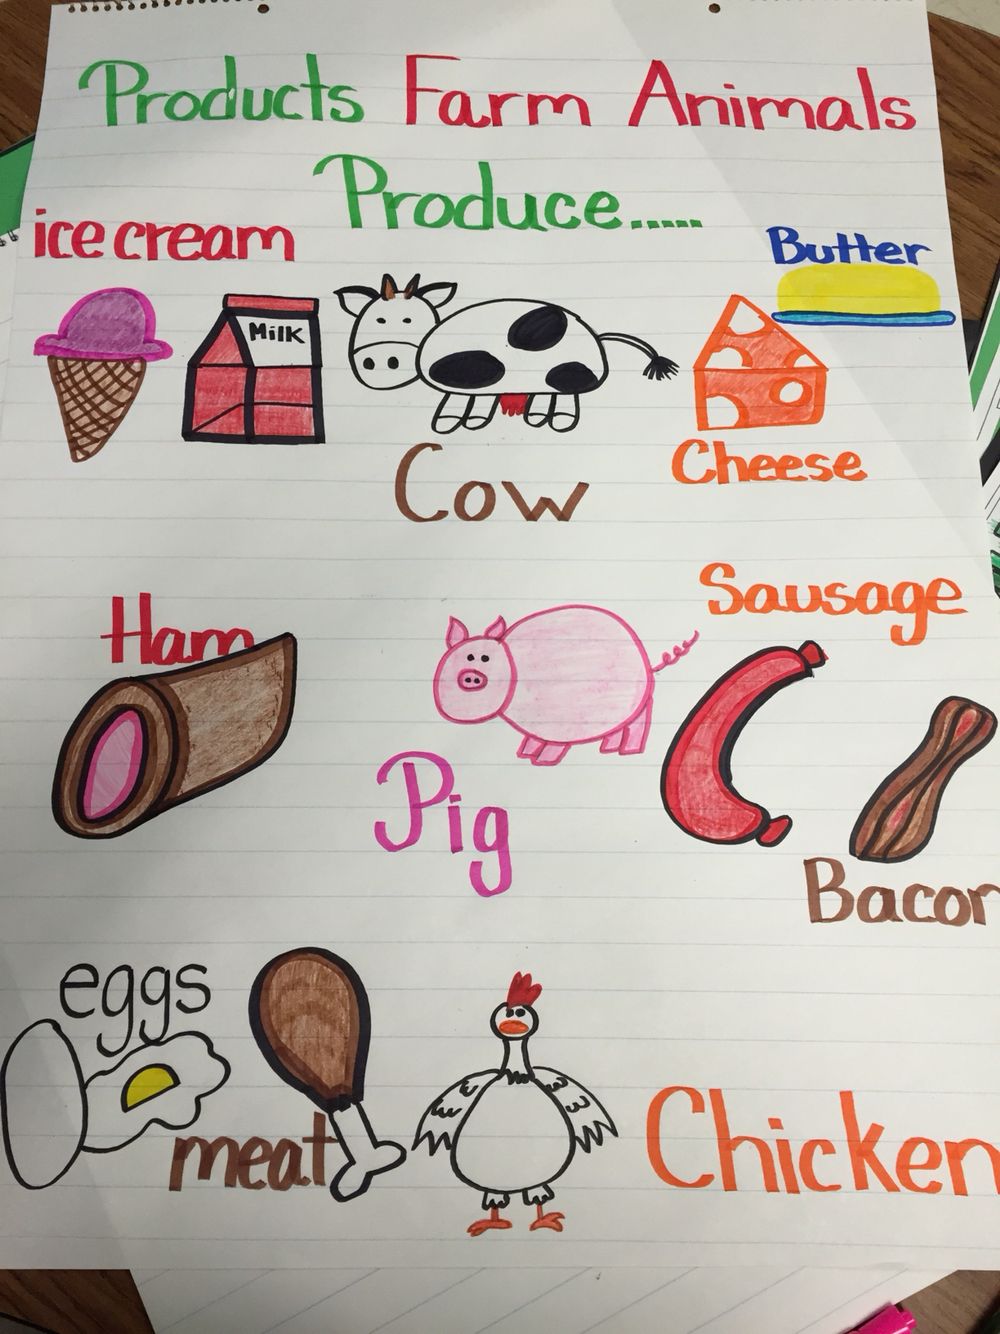 Products Farm Animals
Produce.....
ice cream
Butter
Milk
Cheese
Cow
Sausage
Ham
Pig
Bacon
eggs
meat
Chicken